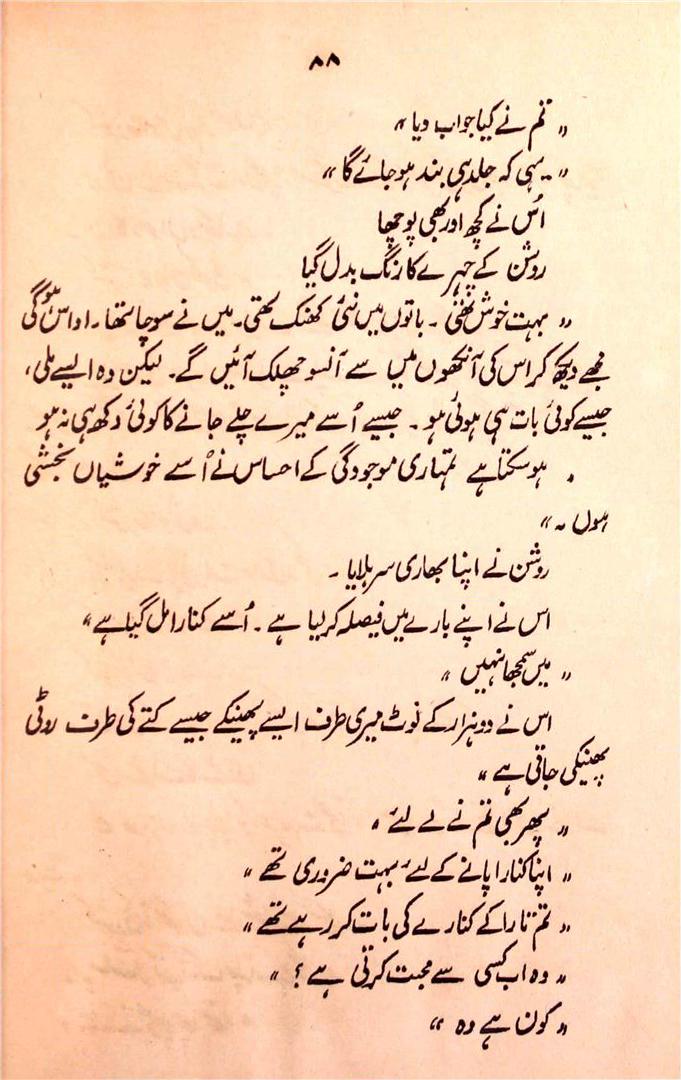 ۸۸
" تم نے کیا جواب دیا "
" یہی کہ جلد ہی بند ہو جائے گا "
اُس نے کچھ اور بھی پوچھا
روشن کے چہرے کا رنگ بدل گیا
" بہت خوش تھی ۔ باتوں میں نئی کھنک تھی۔ میں نے سوچا تھا۔ اداس ہوگی
مجھے دیکھ کر اس کی آنکھوں میں سے آنسو چھلک آئیں گے۔ لیکن وہ ایسے ملی،
جیسے کوئی بات ہی ہوئی ہو ۔ جیسے اُسے میرے چلے جانے کا کوئی دکھ ہی نہ ہو
. ہو سکتا ہے تمہاری موجودگی کے احساس نے اُسے خوشیاں بخشی
ہوں ۔ "
روشن نے اپنا بھاری سر ہلایا ۔
اس نے اپنے بارے میں فیصلہ کر لیا ہے ۔ اُسے کنارا مل گیا ہے "
" میں سمجھا نہیں "
اس نے دو ہزار کے نوٹ میری طرف ایسے پھینکے جیسے کتے کی طرف روٹی
پھینکی جاتی ہے "
" پھر بھی تم نے لے لئے "
" اپنا کنارا پانے کے لئے بہت ضروری تھے "
" تم تارا کے کنارے کی بات کر رہے تھے "
" وہ اب کسی سے محبت کرتی ہے ؟ "
" کون ہے وہ "